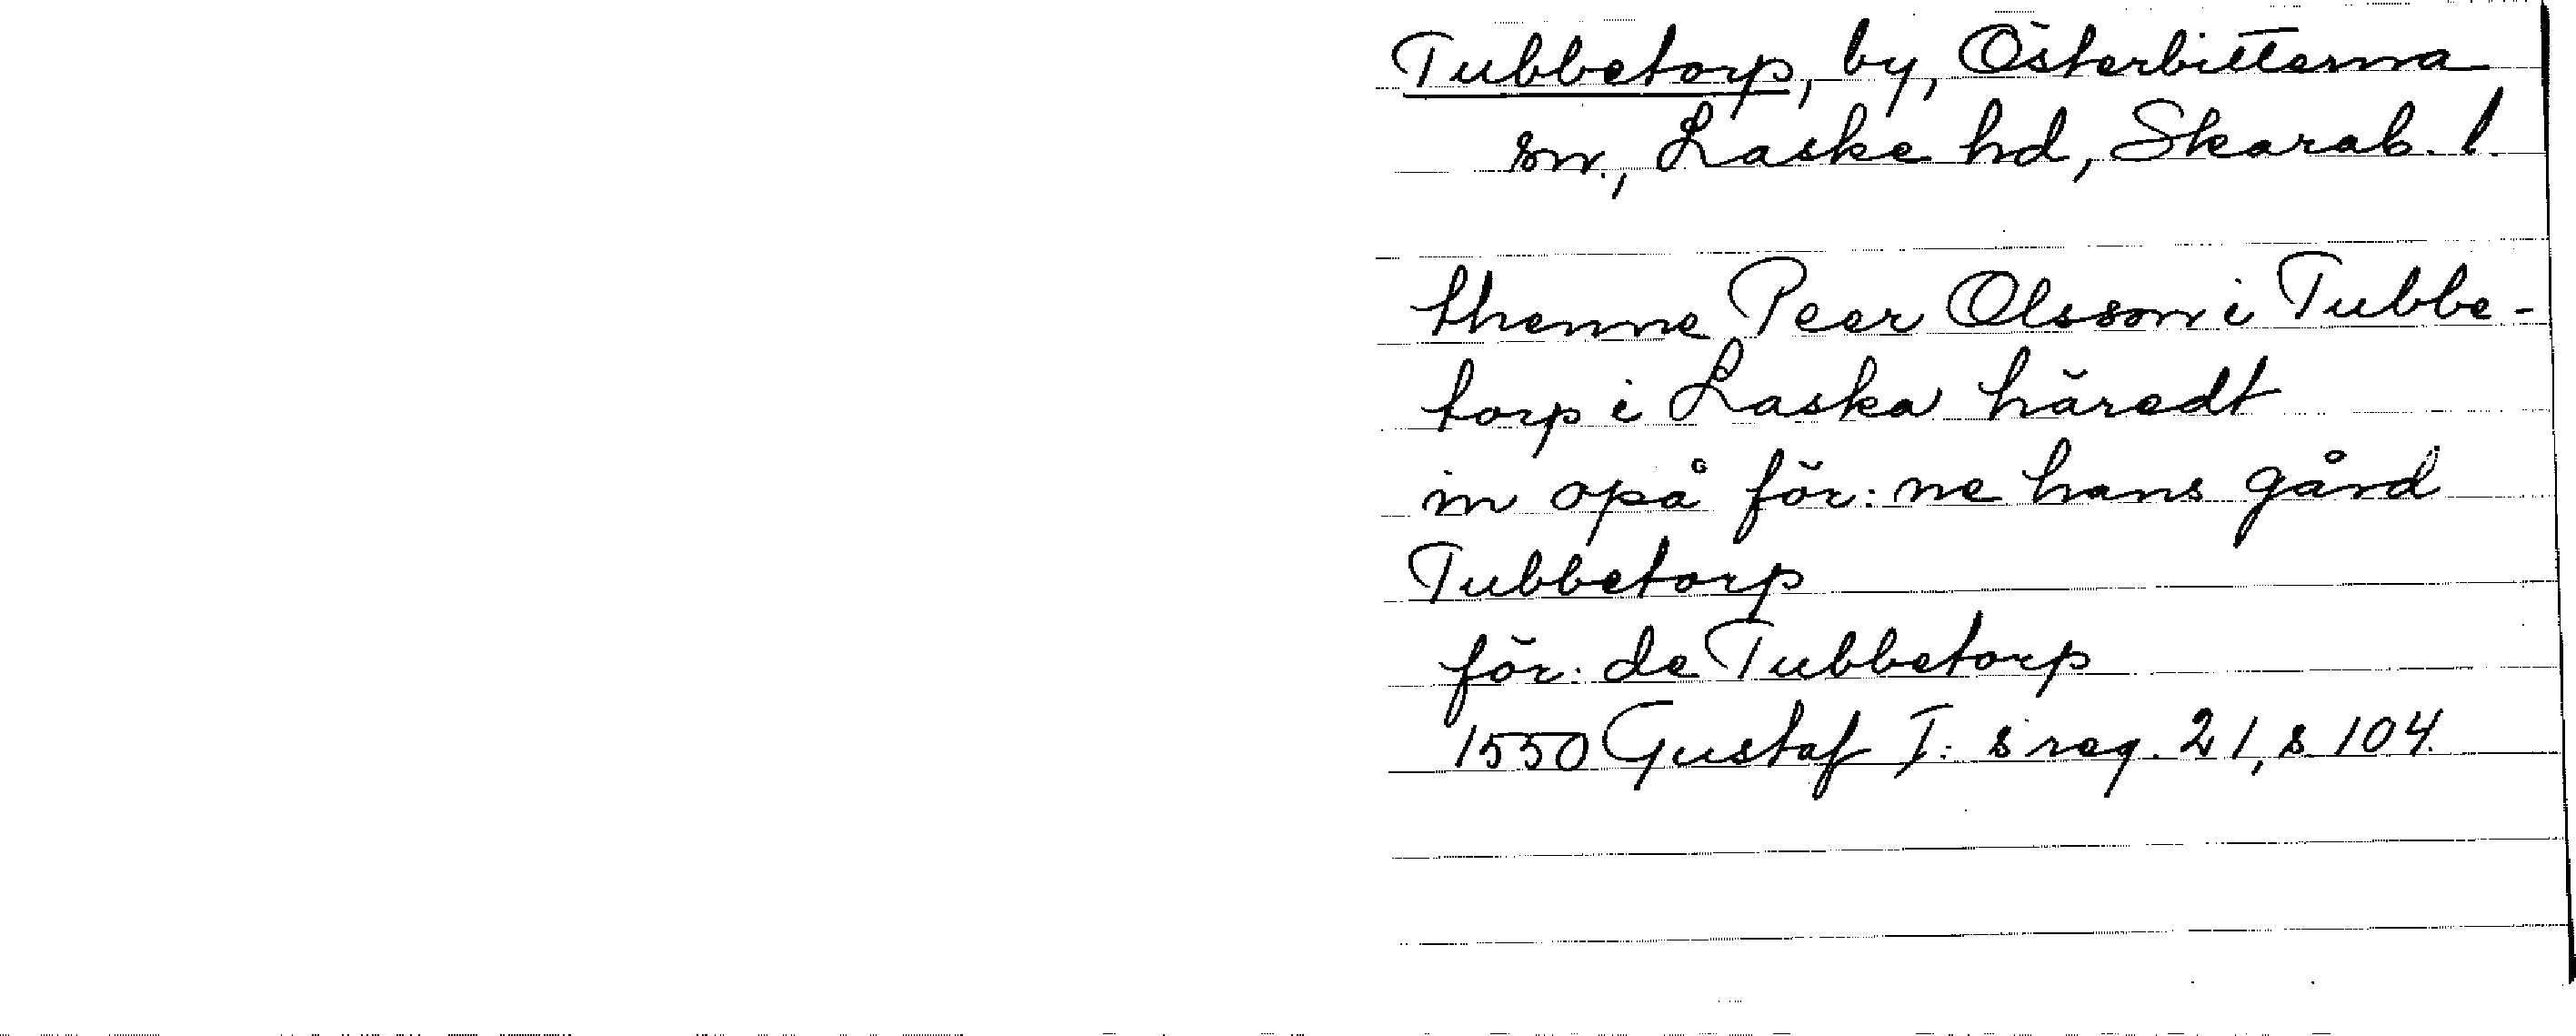 Tubbetorp, by, Österbitterna
sn., Laske hd, Skarab. l.
thenne Peer Olsson i Tubbe-
torp i Laska häredt
in opå för:ne hans gård
Tubbetorp
för:de Tubbetorp
1550 Gustaf I:s reg. 21, s. 104.